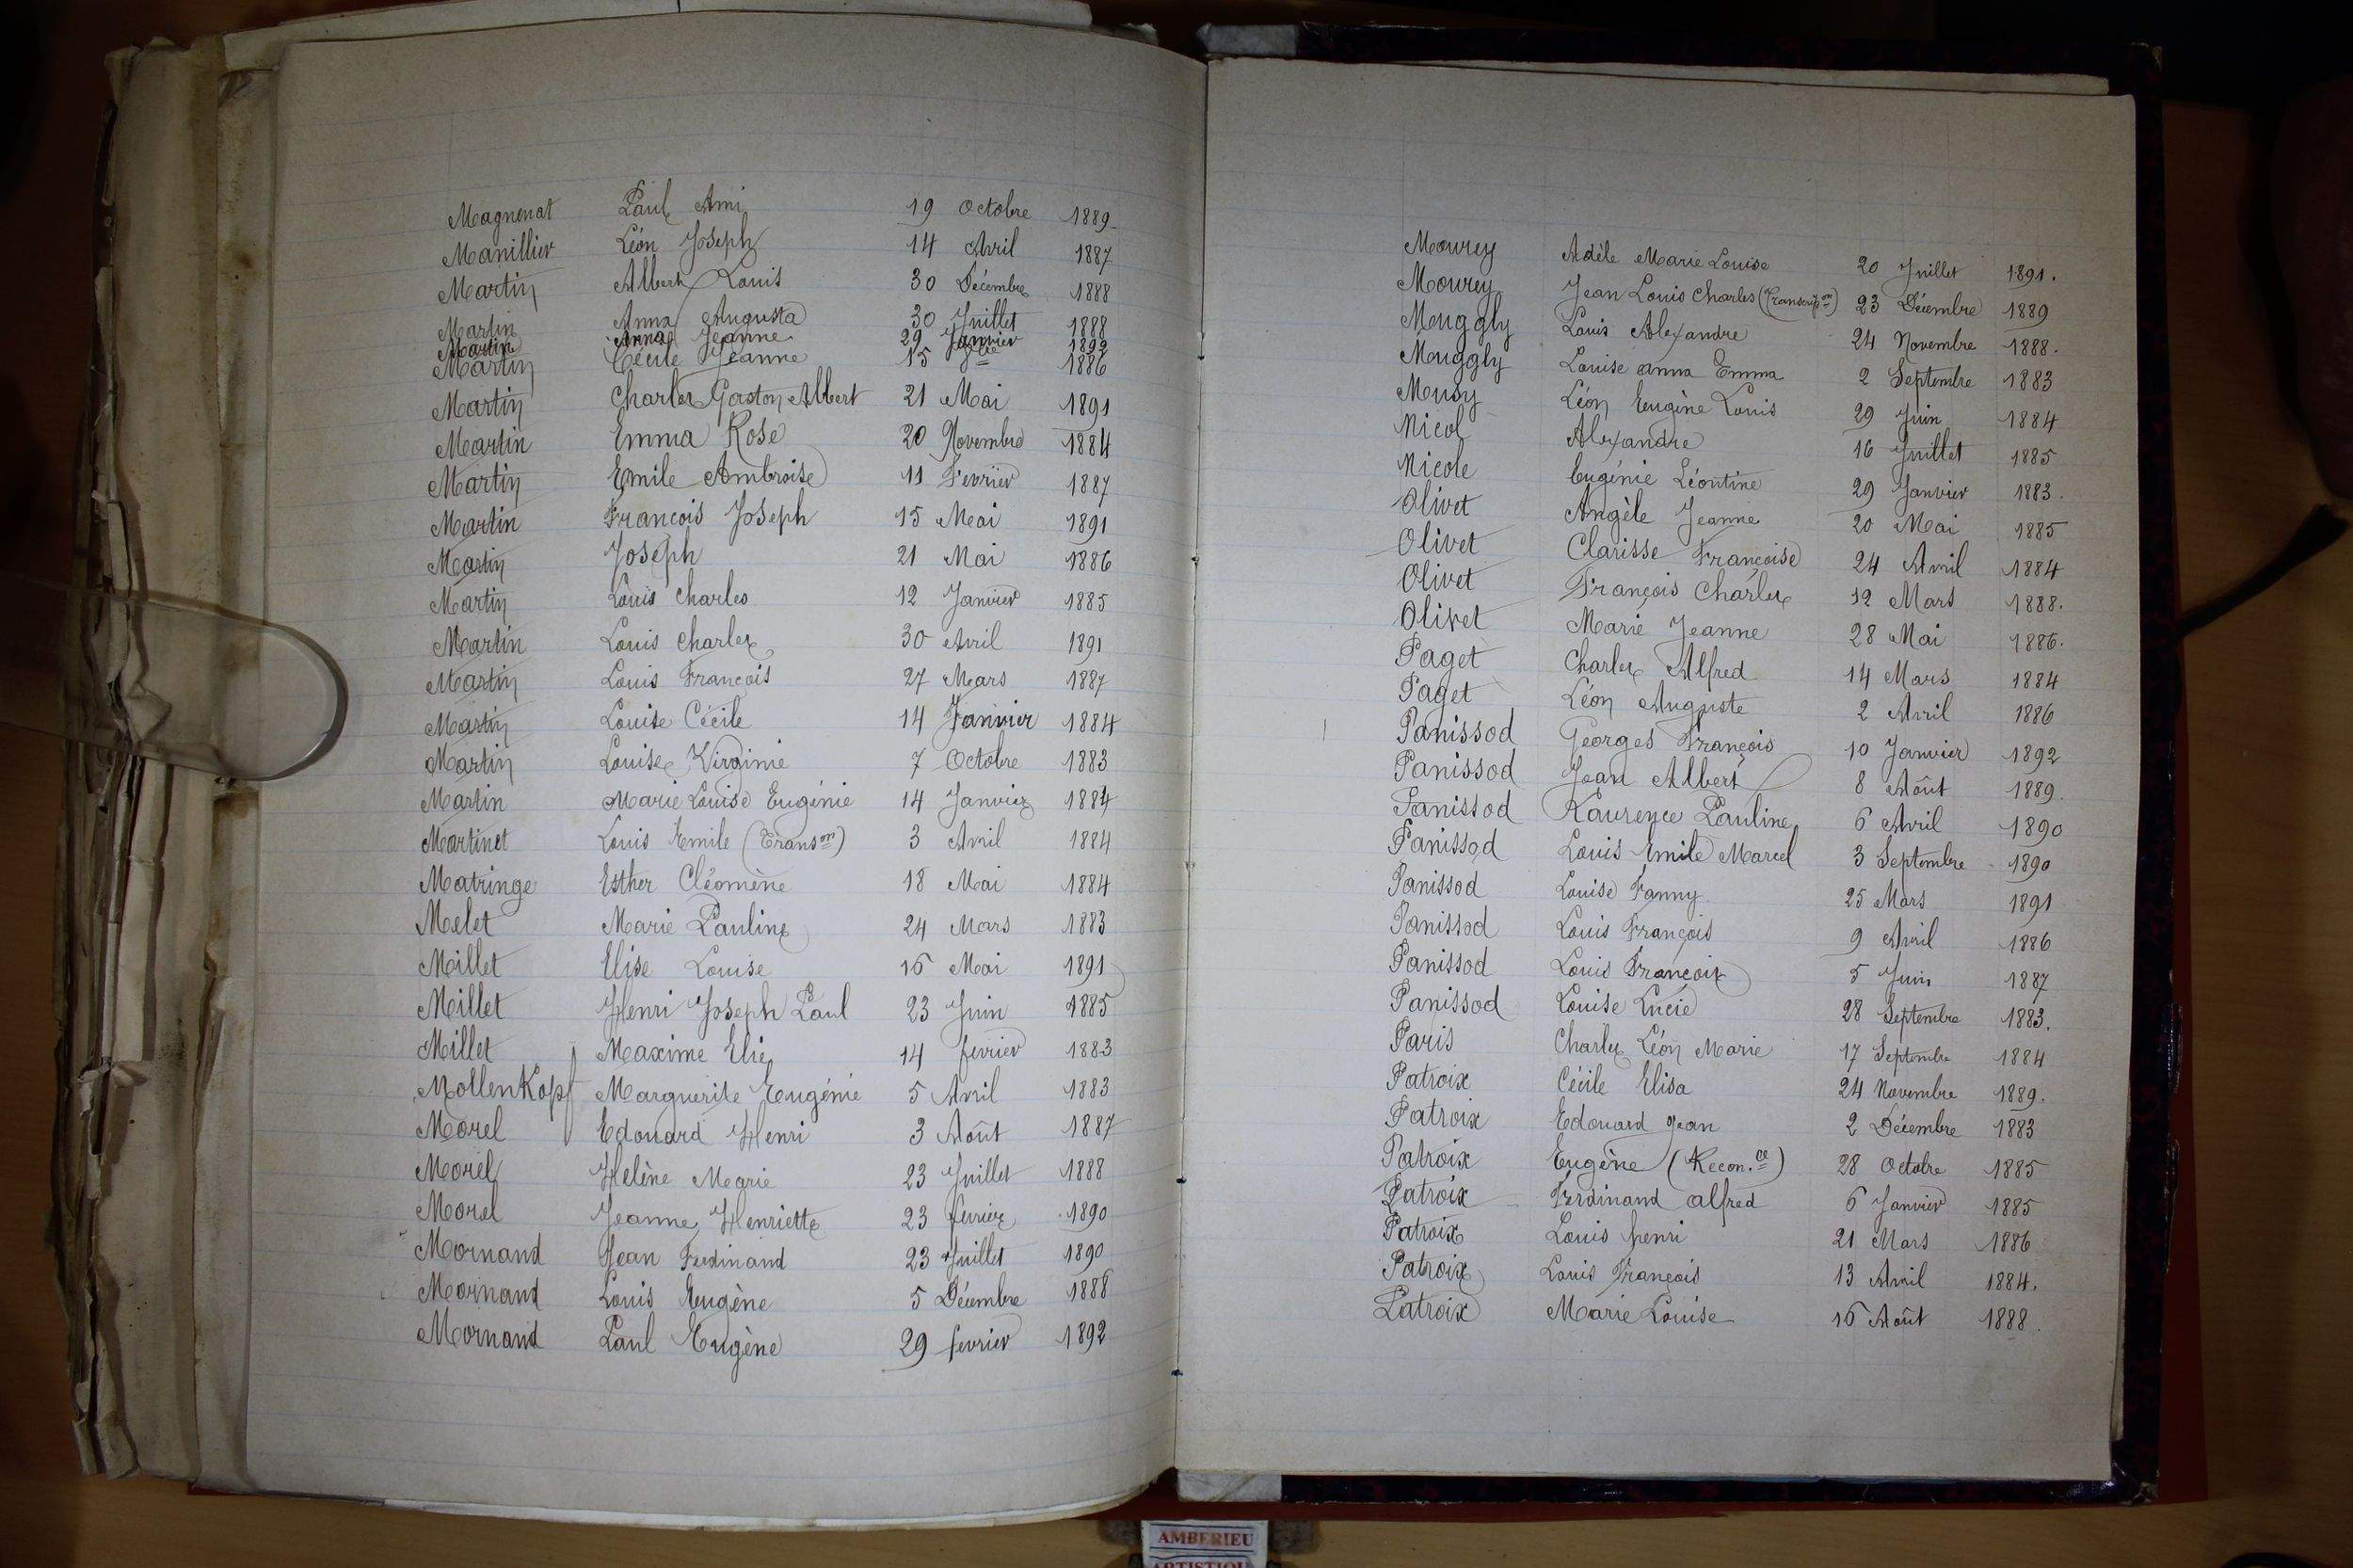 Magnenat Paul Ami 19 Octobre 1889
Manillier Léon Joseph 14 Avril 1887
Martin Albert Louis 30 Décembre 1888
Martin Anna Augusta 30 Juillet 1888
Martin Anna Jeanne 29 Janvier 1892
Martin Cécile Jeanne 15 1886
Martin Charles Gaston Albert 21 Mai 1891
Martin Emma Rose 20 Novembre 1884
Martin Emile Ambroise 11 Février 1887
Martin François Joseph 15 Mai 1891
Martin Joseph 21 Mai 1886
Martin Louis Charles 12 Janvier 1885
Martin Louis Charles 30 Avril 1891
Martin Louis François 27 Mars 1887
Martin Louise Cécile 14 Janvier 1884
Martin Louise Virginie 7 Octobre 1883
Martin Marie Louise Eugénie 14 Janvier 1884
Martinet Louis Emile (Transon) 3 Avril 1884
Matringe Esther Cléomène 18 Mai 1884
Melet Marie Pauline 24 Mars 1883
Millet Elise Louise 16 Mai 1891
Millet Henri Joseph Paul 23 Juin 1885
Millet Maxime Elie 14 fevrier 1883
MollenKopf Marguerite Eugénie 5 Avril 1883
Morel Edouard Henri 3 Août 1887
Morel Helène Marie 23 Juillet 1888
Morel Jeanne Henriette 23 fevrier 1890
Mornand Jean Ferdinand 23 Juillet 1890
Mornand Louis Eugène 5 Décembre 1888
Mornand Paul Eugène 29 fevrier 1892
Mourey Adèle Marie Louise 20 Juillet 1891.
Mourey Jean Louis Charles (Transcripon) 23 Décembre 1889
Muggly Louis Alexandre 24 Novembre 1888.
Muggly Louise anna Emma 2 Septembre 1883
Musy Léon Eugène Louis 29 Juin 1884
Nicol Alexandre 16 Juillet 1885
Nicole Eugénie Léontine 29 Janvier 1883.
Olivet Angèle Jeanne 20 Mai 1885
Olivet Clarisse Françoise 24 Avril 1884
Olivet François Charles 12 Mars 1888.
Olivet Marie Jeanne 28 Mai 1886.
Paget Charles Alfred 14 Mars 1884
Paget Léon Auguste 2 Avril 1886
Panissod Georges François 10 Janvier 1892
Panissod Jean Albert 8 Août 1889.
Panissod Laurence Pauline 6 Avril 1890
Panissod Louis Emile Marcel 3 Septembre 1890
Panissod Louise Fanny 25 Mars 1891
Panissod Louis François 9 Avril 1886
Panissod Louis François 5 Juin 1887
Panissod Louise Lucie 28 Septembre 1883.
Paris Charles Léon Marie 17 Septembre 1884
Patroix Cécile Elisa 24 Novembre 1889.
Patroix Edouard Jean 2 Décembre 1883
Patroix Eugène (Recon.ce) 28 Octobre 1885
Patroix Ferdinand Alfred 6 Janvier 1885
Patroix Louis henri 21 Mars 1886
Patroix Louis François 13 Avril 1884.
Patroix Marie Louise 16 Août 1888.
AMBERIEU